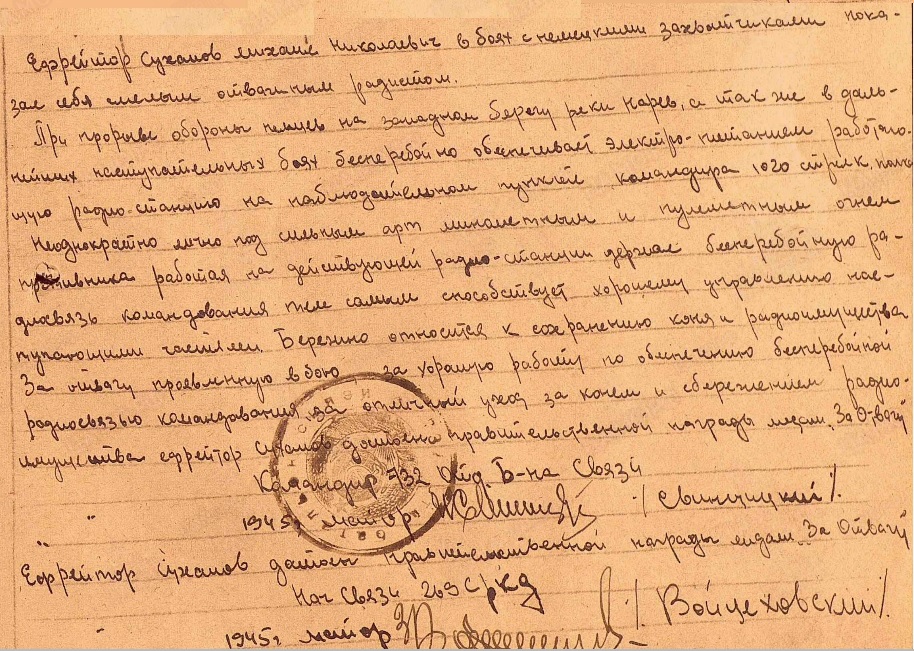 Ефрейтор Суханов Михаил Николаевич в боях с немецкими захватчиками пока-
зал себя смелым отважным радистом.
При прорыве обороны немцев на западном берегу реки Нарев, а так же в даль-
нейших наступательных боях бесперебойно обеспечивает электро-питанием работаю-
щую радио-станцию на наблюдательном пункте командира 1020 стрелк. полка
Неоднократно лично под сильным арт минометным и пулеметным огнем
противника работая на действующей радио-станции держал бесперебойную ра-
диосвязь командования тем самым способствует хорошему управлению нас-
тупающими частями. Бережно относится к сохранению коня и радиоимущества
За отвагу проявленную в бою за хорошую работу по обеспечению бесперебойной
радиосвязью командования, за отличный уход за конем и сбережением радио-
имущества ефрейтор Суханов достоен правительственной награды медал. "За Отвагу"
Командир 732 Отд. Б-на Связи
" " 1945г майор /Свинчицкий/.
Ефрейтор Суханов достоен правительственной награды медали "За Отвагу"
Нач Связи 269 С/ркд
" 1945г майор /Войцеховский/.